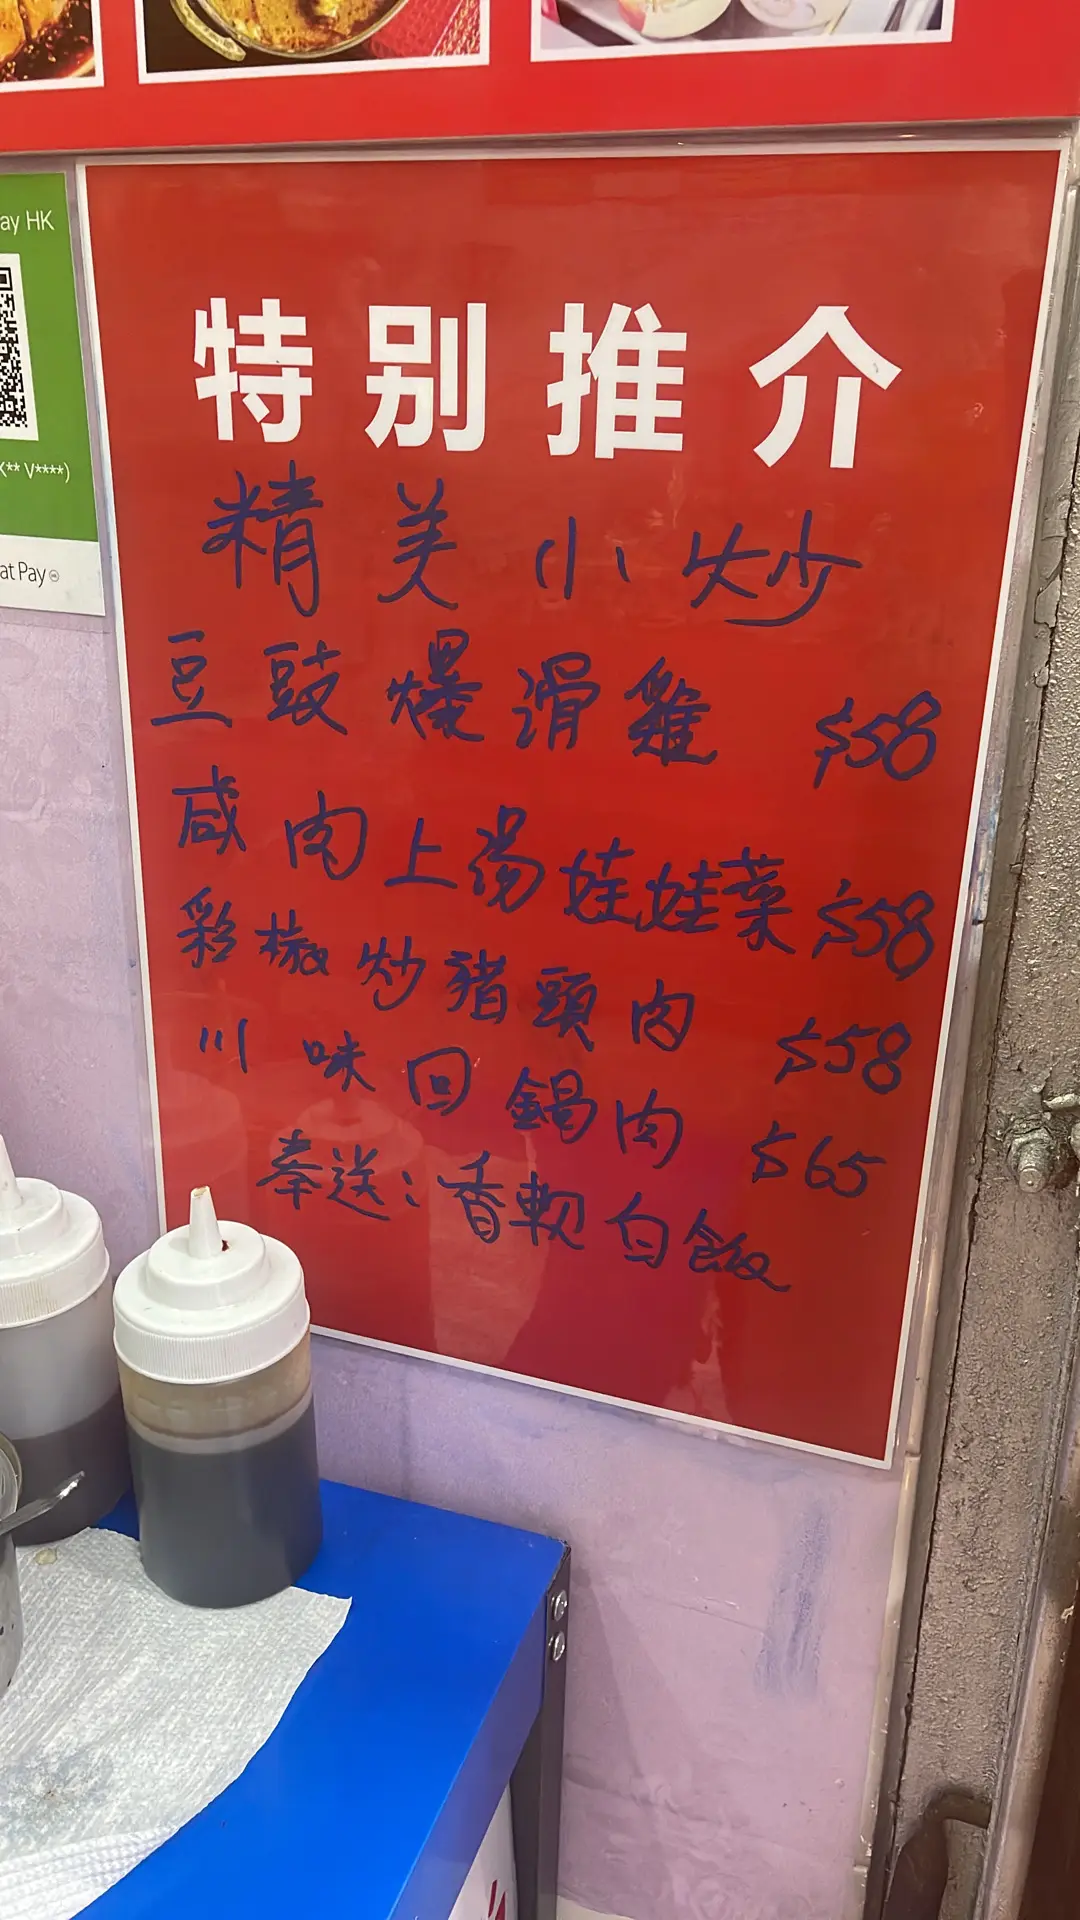 ay HK
K** V****)
at Pay HK
特别推介
精美小炒
豆豉爆滑雞 $58
咸肉上湯娃娃菜 $58
彩椒炒豬頭肉 $58
川味回鍋肉 $65
奉送：香軟白飯